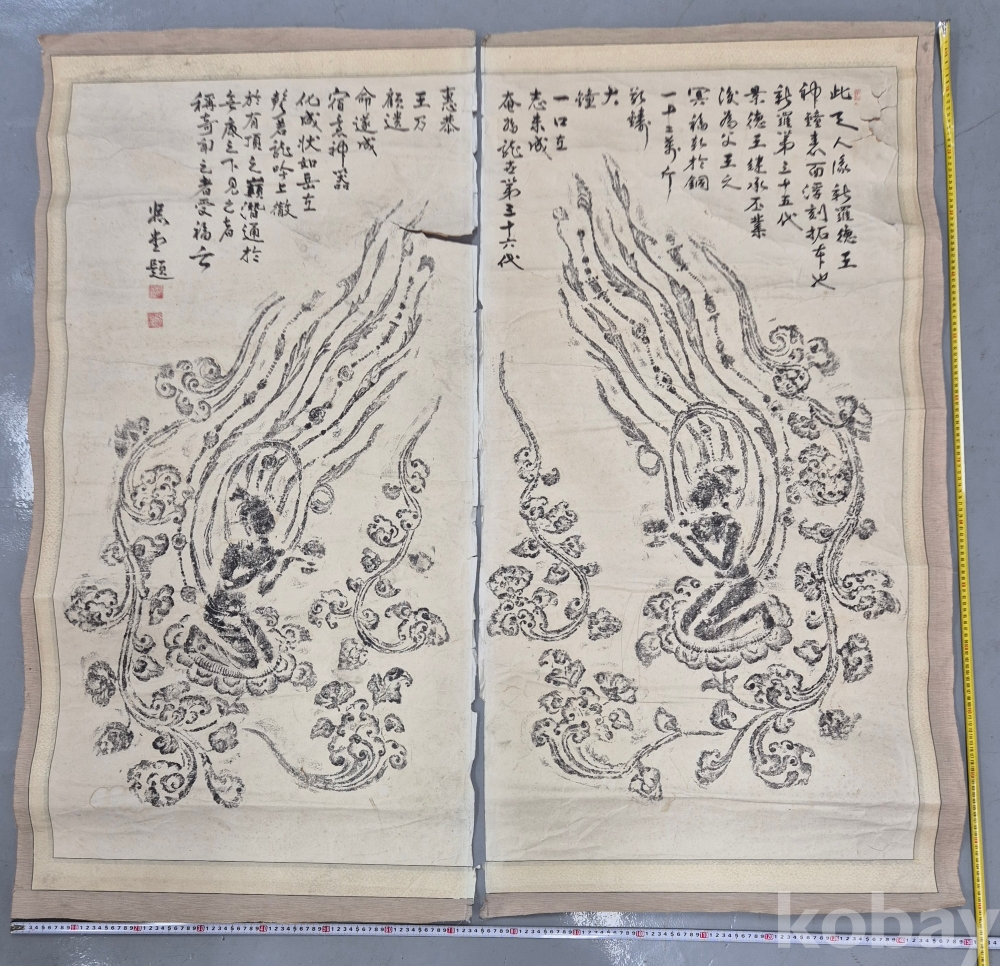 此天人像新羅聖德王
神鐘表面浮刻拓本也
新羅第三十五代
景德王継承丕業
後為父王之
冥福臥於銅
一十二萬斤
欲鑄
大
鐘
一口在
志未成
奋於龍岳第三十六代
惠恭
王乃
顧遺
命遂成
宿意神器
化成狀如岳在
聲若龍吟上徹
於有頂之巔潛通於
無底之下見之者
稱奇聞之者受福
題
kobay